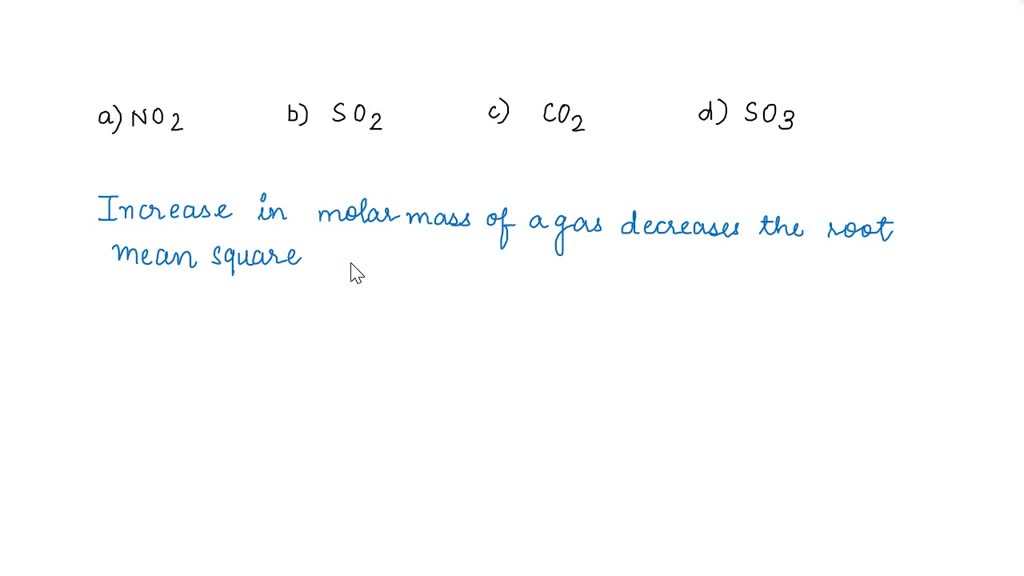 a) NO2 b) SO2 c) CO2 d) SO3
Increase in molar mass of a gas decreases the root
mean square